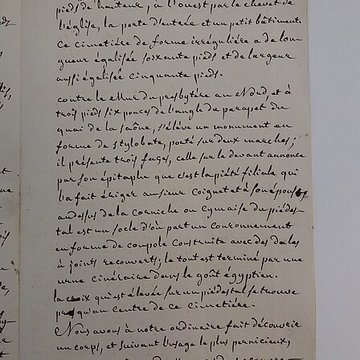 pieds de hauteur, à l'ouest par le chevet de
l'église, la porte d'entrée et un petit bâtiment.
Ce cimetière de forme irrégulière a de lon-
gueur égalisée soixante pieds et de largeur
aussi égalisée cinquante pieds.
contre le mur du presbytère au Nord et à
trois pieds six pouces de l'angle du parapet du
quai de la saône, s'élève un monument en
forme de stylobate, porté sur deux marches;
il présente trois faces, celle sur le devant annonce
par son épitaphe que c'est la piété filiale qui
l'a fait ériger au sieur Coignet et à son épouse
au dessus de la corniche ou cymaise du piédes-
tal est un socle d'où part un couronnement
en forme de coupole construite avec des dales
à joints recouverts; le tout est terminé par une
urne cinéraire dans le goût égyptien.
la croix qui est élevée sur un piédestal se trouve
presqu'au centre de ce cimetière.
Nous avons à notre ordinaire fait découvrir
un corps, et suivant l'usage le plus pernicieux,